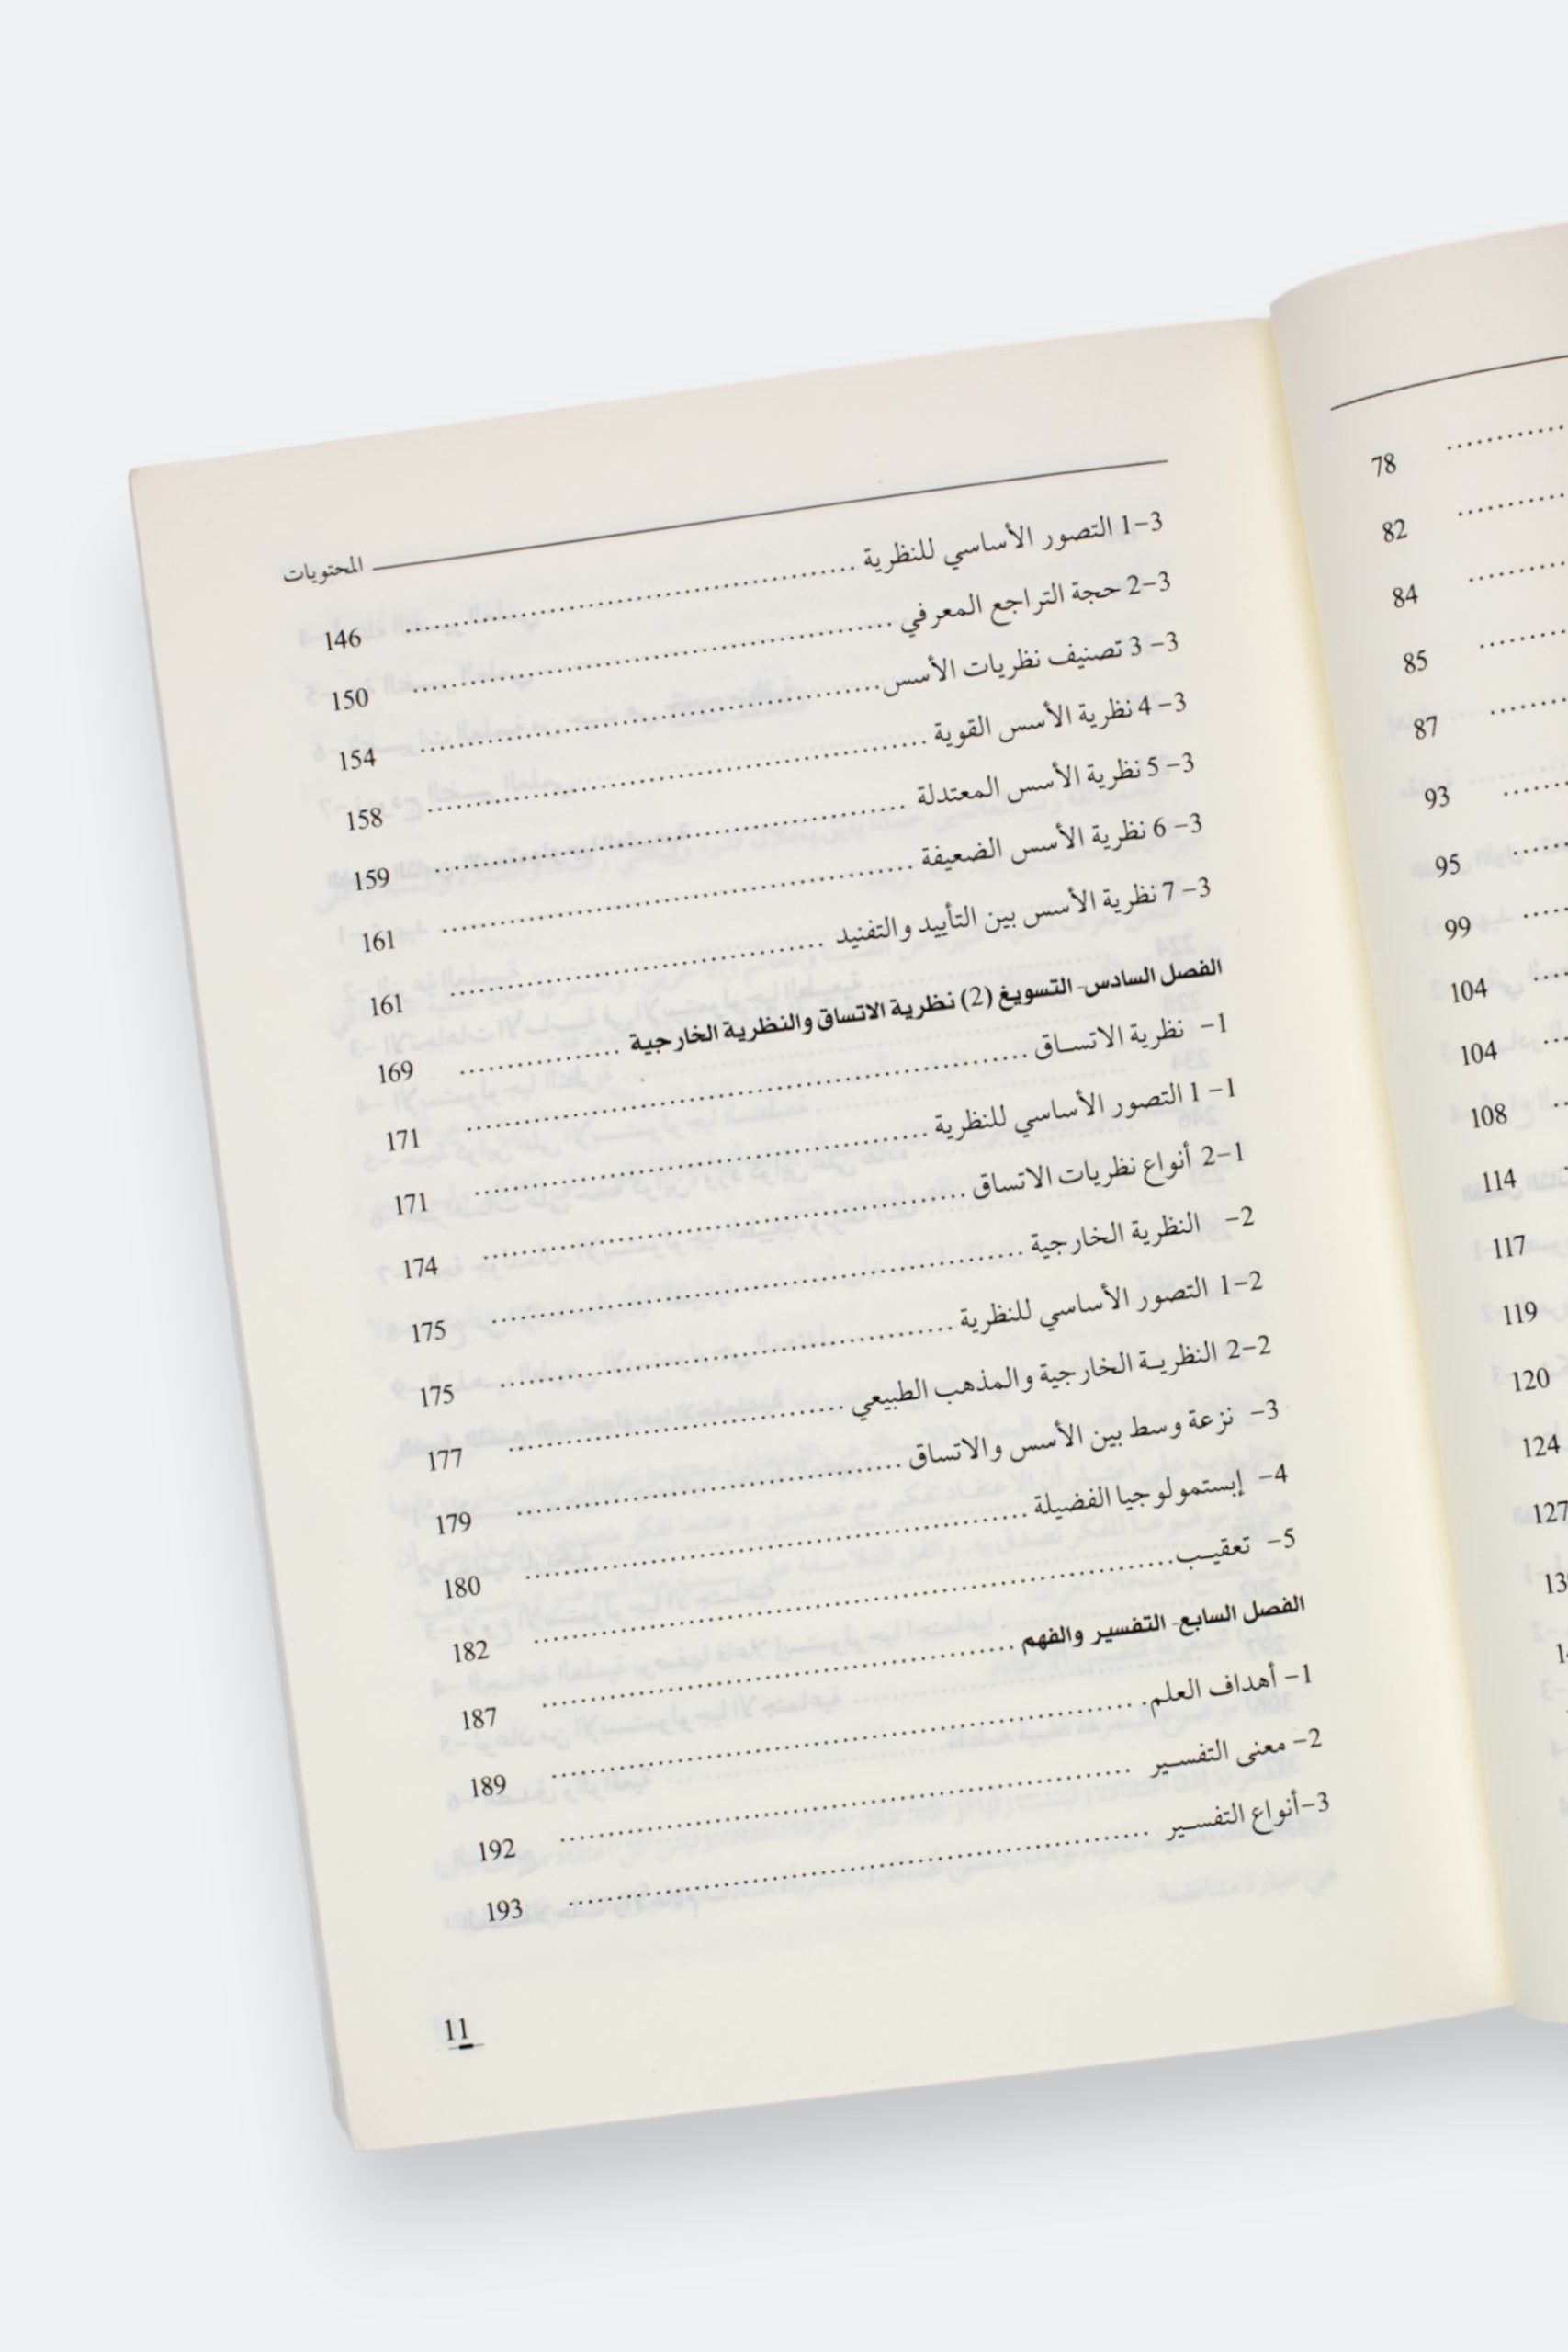 المحتويات
3-1 التصور الأساسي للنظرية ........ 146
3-2 حجة التراجع المعرفي ........ 150
3- 3 تصنيف نظريات الأسس ........ 154
3- 4 نظرية الأسس القوية ........ 158
3- 5 نظرية الأسس المعتدلة ........ 159
3- 6 نظرية الأسس الضعيفة ........ 161
3- 7 نظرية الأسس بين التأييد والتفنيد ........ 161
الفصل السادس- التسويغ (2) نظرية الاتساق والنظرية الخارجية ........ 169
1- نظرية الاتساق ........ 171
1- 1 التصور الأساسي للنظرية ........ 171
1-2 أنواع نظريات الاتساق ........ 174
2- النظرية الخارجية ........ 175
2-1 التصور الأساسي للنظرية ........ 175
2-2 النظرية الخارجية والمذهب الطبيعي ........ 177
3- نزعة وسط بين الأسس والاتساق ........ 179
4- إبستمولوجيا الفضيلة ........ 180
5- تعقيب ........ 182
الفصل السابع- التفسير والفهم ........ 187
1- أهداف العلم. ........ 189
2- معنى التفسير ........ 192
3-أنواع التفسير ........ 193
11
78
82
84
85
87
93
95
99
104
104
108
114
117
119
120
124
127